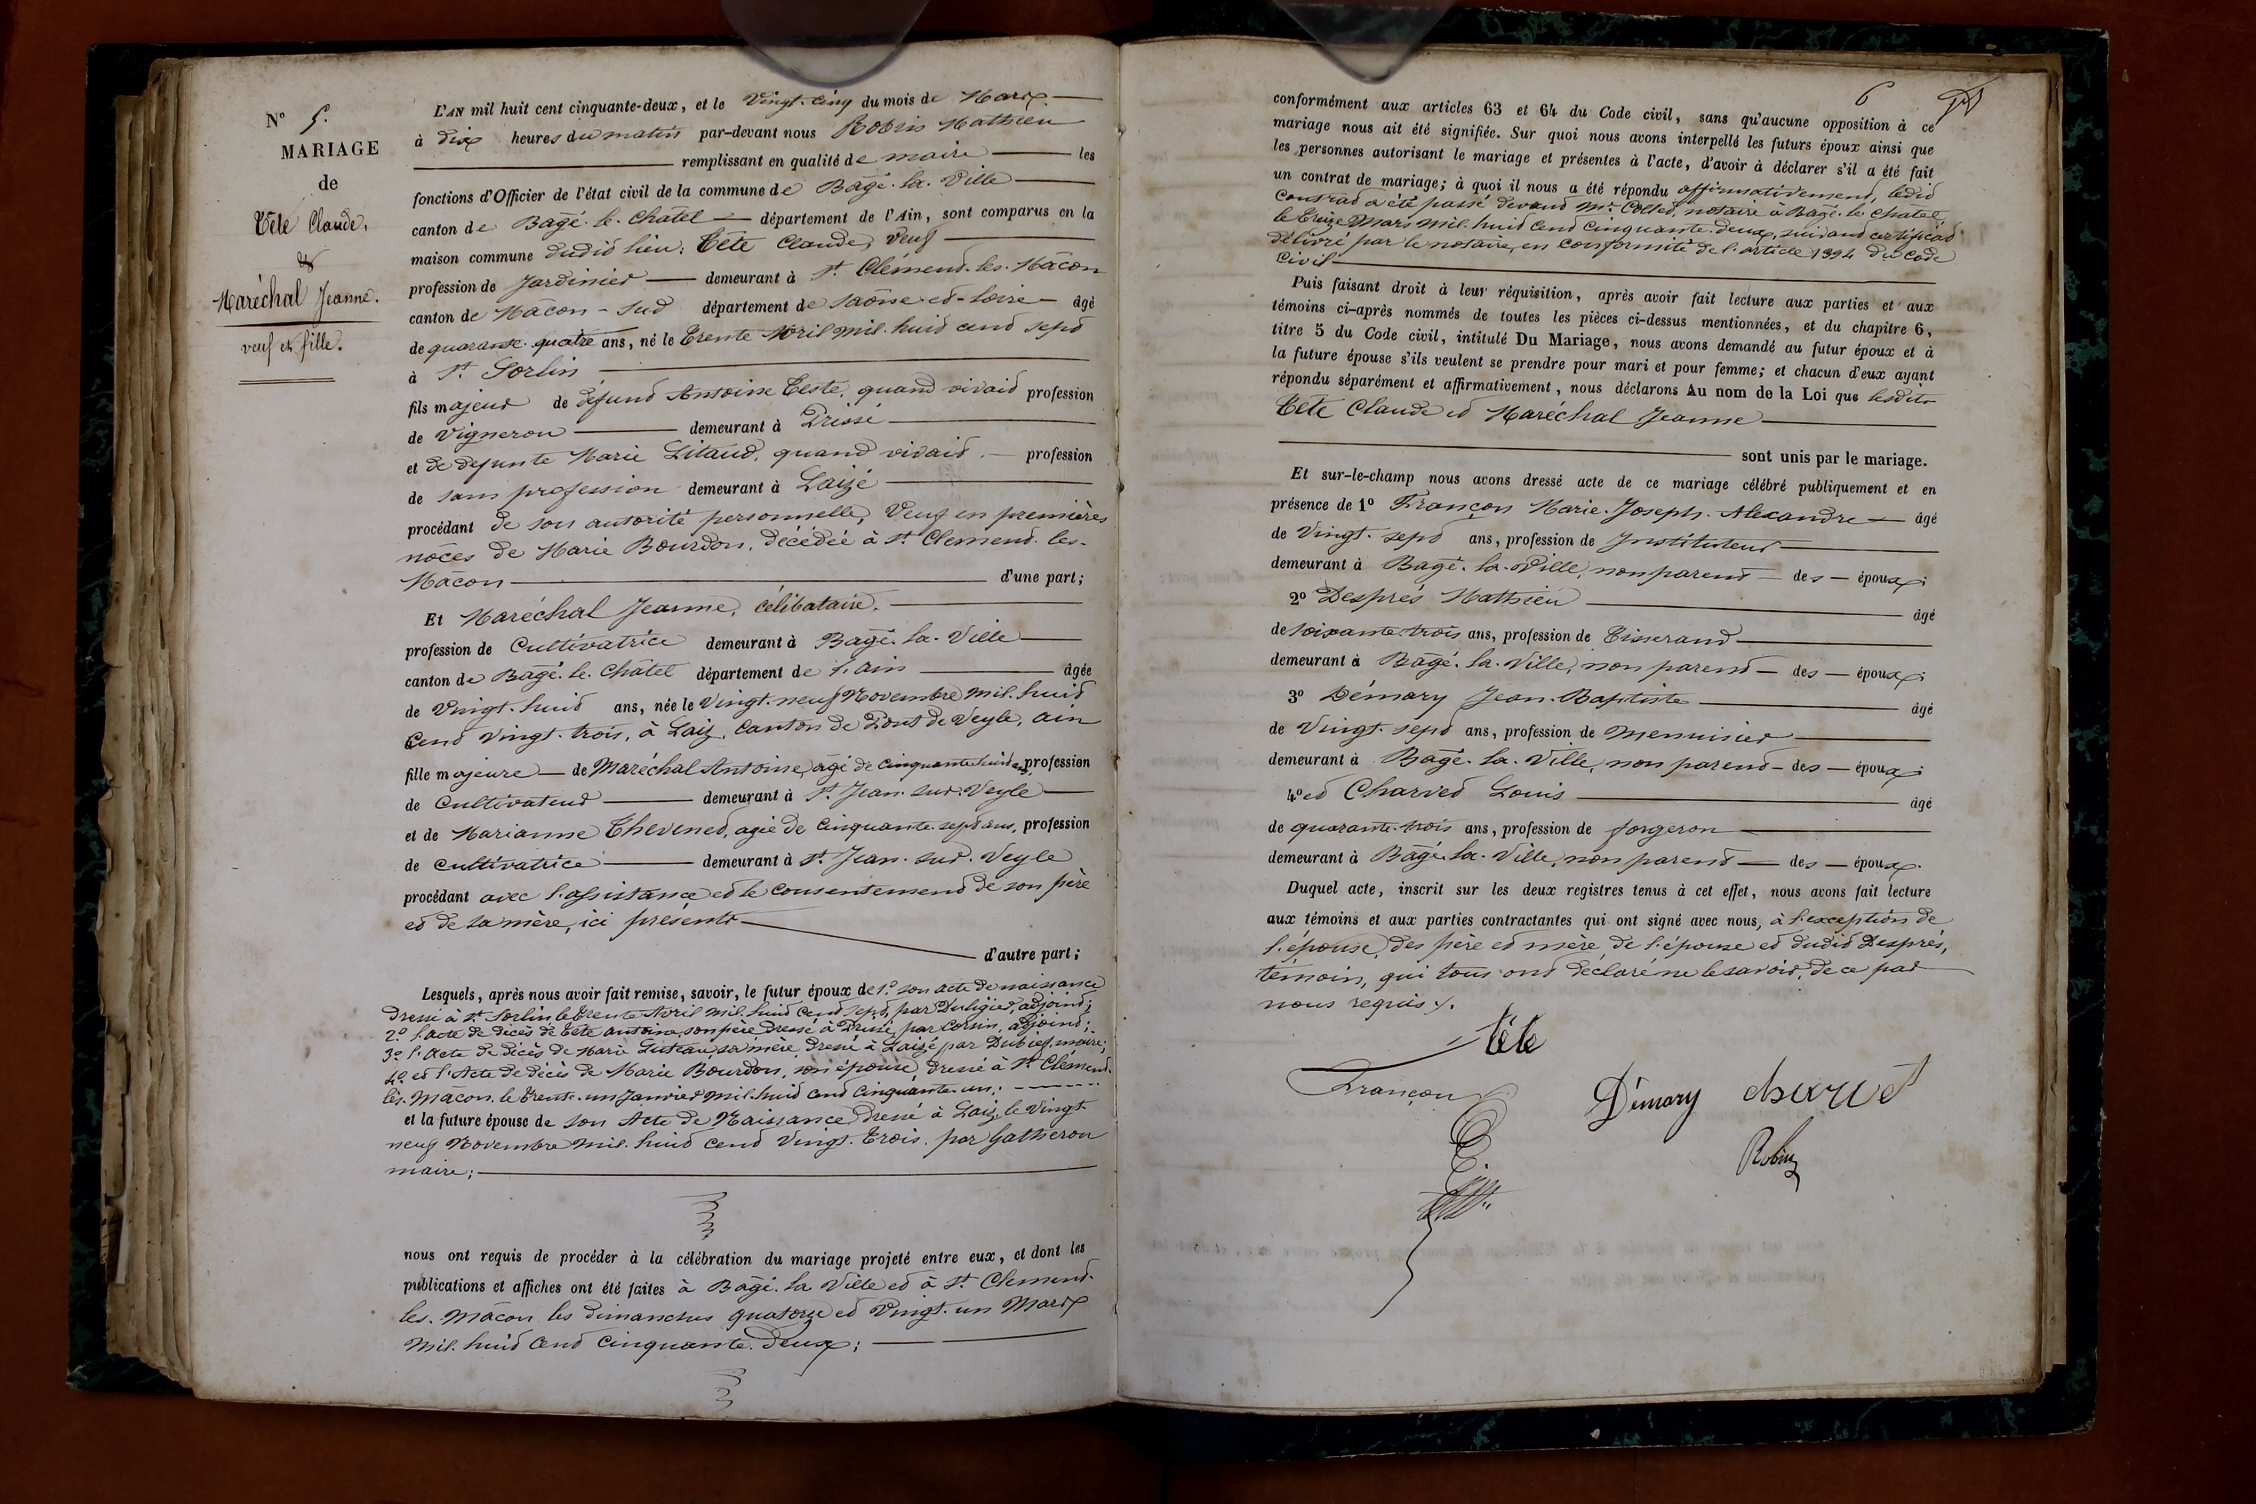 N° 5.
MARIAGE
de
Tête Claude,
&
Maréchal Jeanne.
veuf et fille.
L'AN mil huit cent cinquante-deux, et le Vingt-cinq du mois de Mars
à dix heures du matin par-devant nous Robin Mathieu
remplissant en qualité de maire les
fonctions d'Officier de l'état civil de la commune de Bâgé-la-Ville
canton de Bâgé-le-Châtel département de l'Ain, sont comparus en la
maison commune dudit lieu: Tête Claude, Veuf
profession de Jardinier demeurant à St Clément-les-Mâcon
canton de Mâcon-Sud département de Saône-et-Loire âgé
de quarante-quatre ans, né le trente Avril mil-huit cent sept
à St Sorlin
fils majeur de défunt Antoine Teste, quand vivait profession
de Vigneron demeurant à Prissé
et de defunte Marie Litaud, quand vivait profession
de sans profession demeurant à Laizé
procédant de son autorité personnelle, Veuf en premières
noces de Marie Bourdon, décédée à St Clement-les-
Mâcon d'une part;
Et Maréchal Jeanne, célibataire.
profession de Cultivatrice demeurant à Bagé-la-Ville
canton de Bagé-le-Châtel département de l'Ain âgée
de Vingt-huit ans, née le Vingt-neuf Novembre mil-huit
Cent Vingt-trois, à Laiz, Canton de Pont de Veyle, Ain
fille majeure de Maréchal Antoine, âgé de cinquante-huit ans, profession
de Cultivateur demeurant à St Jean-sur-Veyle
et de Marianne Thevenet, agée de cinquante-sept ans, profession
de Cultivatrice demeurant à St Jean-sur-Veyle
procédant avec l'assistance et le consentement de son père
et de sa mère, ici présents
d'autre part;
Lesquels, après nous avoir fait remise, savoir, le futur époux de 1° son acte de naissance
dressé à St Sorlin, le trente Avril mil huit cent sept, par Duligier, adjoint;
2° l'acte de décès de Tête Antoine, son père dressé à Prissé, par Corsin, adjoint;
3° l'Acte de décès de Marie Luteau, sa mère, dressé à Laizé par Dubief, maire;
4° et l'Acte de décès de Marie Bourdon, son épouse, dressé à St Clément-
les-Mâcon, le trente-un Janvier mil-huit cent cinquante-un;
et la future épouse de son Acte de Naissance dressé à Laiz, le Vingt-
neuf Novembre mil-huit cent Vingt-Trois, par Gatheron
maire;
nous ont requis de procéder à la célébration du mariage projeté entre eux, et dont les
publications et affiches ont été faites à Bâgé-la-Ville et à St Clement-
les-Mâcon les dimanches quatorze et Vingt-un Mars
mil-huit cent cinquante-deux;
6
conformément aux articles 63 et 64 du Code civil, sans qu'aucune opposition à ce
mariage nous ait été signifiée. Sur quoi nous avons interpellé les futurs époux ainsi que
les personnes autorisant le mariage et présentes à l'acte, d'avoir à déclarer s'il a été fait
un contrat de mariage; à quoi il nous a été répondu affirmativement, ledit
Contrat a été passé devant Me Collet, notaire à Bagé-le-Chatel
le treize Mars mil-huit cent cinquante-deux, suivant certificat
délivré par le notaire, en conformité de l'article 1394 du Code
Civil
Puis faisant droit à leur réquisition, après avoir fait lecture aux parties et aux
témoins ci-après nommés de toutes les pièces ci-dessus mentionnées, et du chapitre 6,
titre 5 du Code civil, intitulé Du Mariage, nous avons demandé au futur époux et à
la future épouse s'ils veulent se prendre pour mari et pour femme; et chacun d'eux ayant
répondu séparément et affirmativement, nous déclarons Au nom de la Loi que lesdits
Tête Claude et Maréchal Jeanne
sont unis par le mariage.
Et sur-le-champ nous avons dressé acte de ce mariage célébré publiquement et en
présence de 1° Françon Marie-Joseph-Alexandre âgé
de Vingt-sept ans, profession de Instituteur
demeurant à Bagé-la-Ville, non parent des époux;
2° Després Mathieu âgé
de soixante-trois ans, profession de Tisserand
demeurant à Bâgé-la-Ville, non parent des époux;
3° Démary Jean-Baptiste âgé
de Vingt-sept ans, profession de Menuisier
demeurant à Bagé-la-Ville, non parent des époux;
4° et Charvet Louis âgé
de quarante-trois ans, profession de forgeron
demeurant à Bâgé-la-Ville, non parent des époux.
Duquel acte, inscrit sur les deux registres tenus à cet effet, nous avons fait lecture
aux témoins et aux parties contractantes qui ont signé avec nous, à l'exception de
l'épouse, des père et mère de l'épouse et dudit Després,
témoin, qui tous ont déclaré ne le savoir, de ce par
nous requis./.
tête
Françon
Démary charvet
Robin